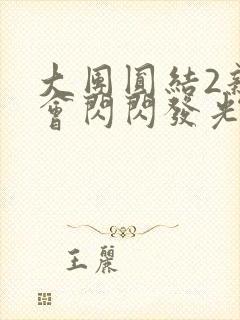 大團圓結2新
會閃閃發光
王麗